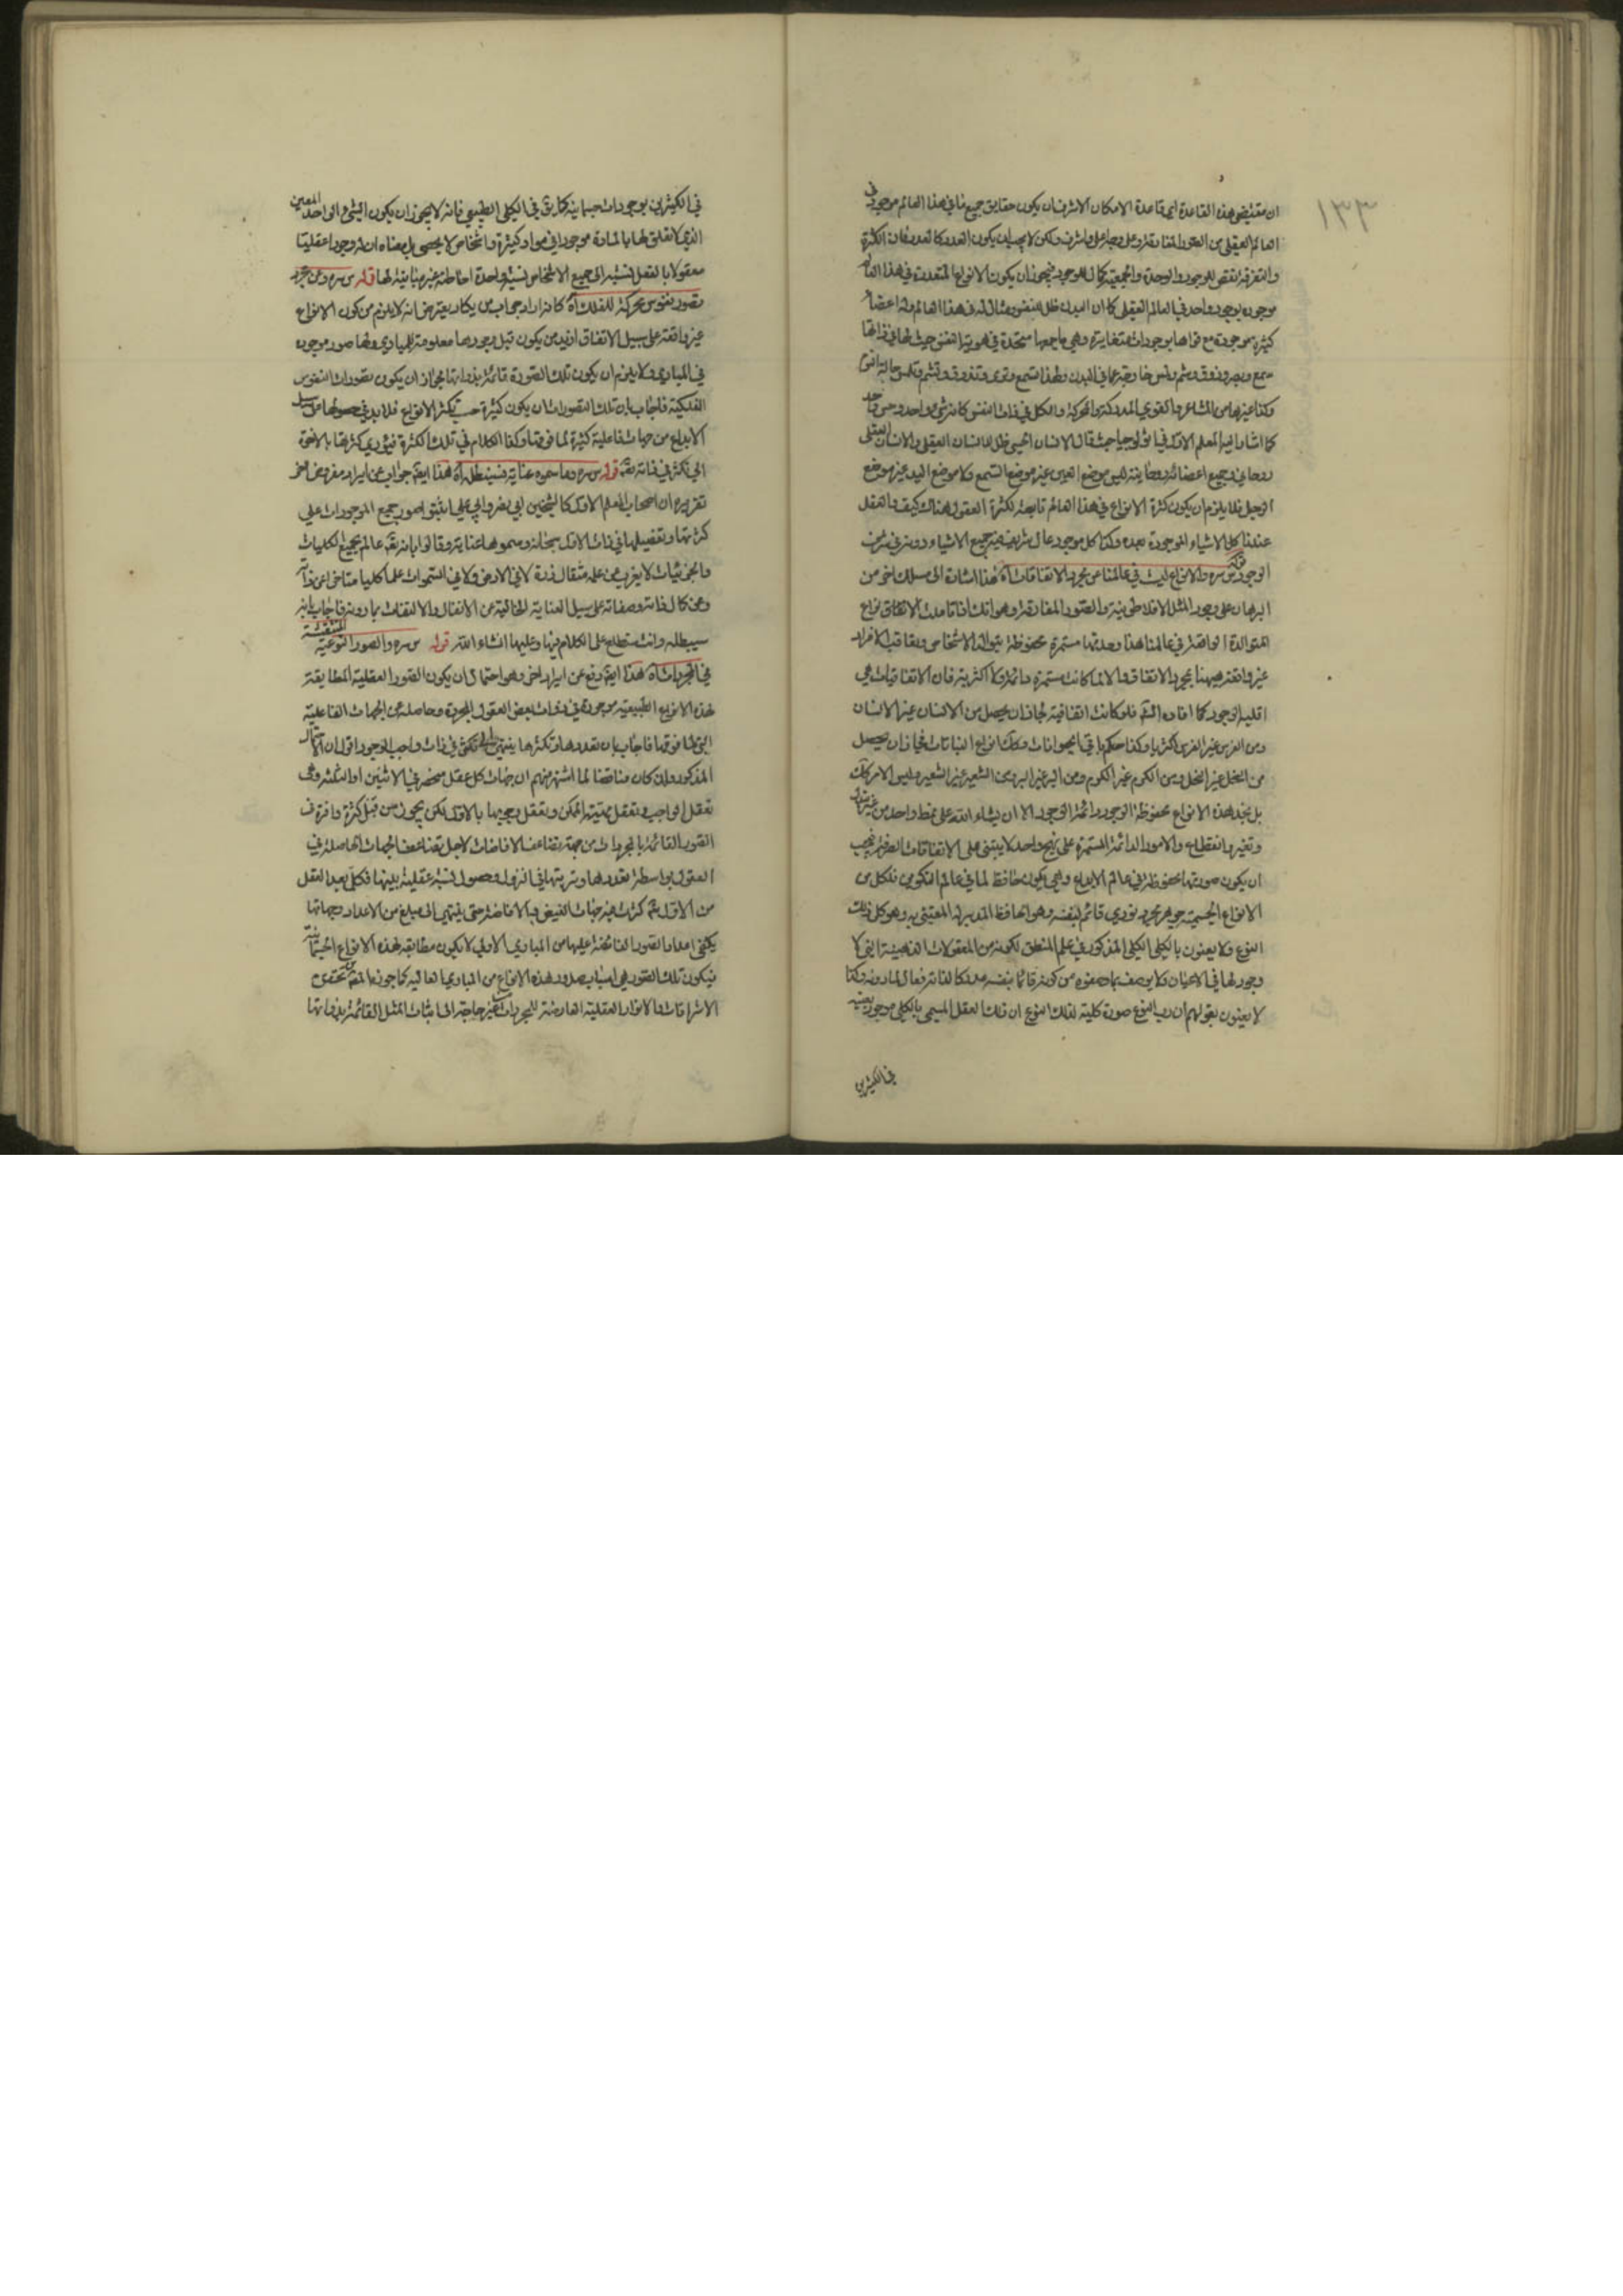 ١٣٣
ان مقتضى هذه القاعدة اى قاعدة الامكان الاشرف ان يكون حقايق جميع ما فى هذا العالم موجودة فى
العالم العقلى من الصور المفارقة وعلى وجه اعلى واشرف ولكن لا يجب ان يكون العدد كالعدد فان الكثرة
والتفرقة لنقص الوجود والوحدة والجمعية لكمال الوجود فيجوز ان يكون الانواع المتعددة فى هذا العالم
موجودة بوجود واحد فى العالم العقلى كما ان البدن ظل للنفس ومثال له فى هذا العالم وله اعضاء
كثيرة موجودة مع قواها بوجودات متغايرة وهى باجمعها متحدة فى هوية النفس حيث لها فى ذاتها
سمع وبصر وذوق وشم ولمس خارجة عما فى البدن ولهذا تسمع وترى وتذوق وتشم وتلمس حالة النوم
وكذا غيرها من المشاعر والقوى المدركة والمحركة والكل فى ذات النفس كانه شىء واحد وحس واحد
كما اشار اليه المعلم الاول فى اثولوجيا حيث قال الانسان الحسى ظل للانسان العقلى والانسان العقلى
روحانى وجميع اعضائه روحانية ليس موضع العين غير موضع السمع ولا موضع اليد غير موضع
الرجل فلا يلزم ان يكون كثرة الانواع فى هذا العالم تابعة لكثرة العقول هناك كيف والعقل
عندنا كل الاشياء الموجودة بعده وكذا كل موجود عال شريف فيه جميع الاشياء دونه فى شرف
الوجود قوله س سره والانواع ليست فى عالمنا عن مجرد الاتفاقات اه هذا اشارة الى مسلك اخر من
البرهان على وجود المثل الافلاطونية والصور المفارقة وهو انك اذا تاملت الانواع
المتوالدة الواقعة فى عالمنا هذا وجدتها مستمرة محفوظة بتوالد الاشخاص وتعاقب الافراد
غير واقعة ههنا بمجرد الاتفاق والا لما كانت مستمرة دائمة ولا اكثرية فان الاتفاقيات هى
اقلية الوجود كما افاده الشيخ فلو كانت اتفاقية لجاز ان يحصل من الانسان غير الانسان
ومن الفرس غير الفرس وكذا حكم باقى الحيوانات وكذلك انواع النباتات فجاز ان يحصل
من النخل غير النخل ومن الكرم غير الكرم ومن البر غير البر ومن الشعير غير الشعير وليس الامر كذلك
بل نجد هذه الانواع محفوظة الوجود دائمة الوجود الا ان يشاء الله على نمط واحد من غير تبدل
وتغير وانقطاع والامور الدائمة المستمرة على نهج واحد لا يبتنى على الاتفاقات الصرفة فيجب
ان يكون صورتها محفوظة فى عالم الابداع وهى يكون حافظ لما فى عالم التكوين فلكل من
الانواع الجسمية جوهر مجرد نورى قائم بنفسه وهو الحافظ المدبر له المعتنى به وهو كل ذلك
النوع ولا يعنون بالكلى الكلى المذكور فى علم المنطق لكونه من المعقولات الذهنية التى لا
وجود لها فى الاعيان ولا يوصف بما وصفوه من كونه قائما بنفسه مدركا لذاته فعالا لما دونه وكذا
لا يعنون بقولهم ان رب النوع صورة كلية لذلك النوع ان ذلك العقل المسمى بالكلى موجود بعينه
فى الكثيرين
فى الكثيرين بوجودات جسمانية كما يق فى الكلى الطبيعى فانه لا يجوز ان يكون الشىء الواحد المعين
الذى لا تعلق لها بالمادة موجودا فى مواد كثيرة واشخاص لا يحصى بل معناه ان له وجودا عقليا
معقولا بالفعل نسبته الى جميع الاشخاص نسبة واحدة احاطته غير مباينة لها قوله س سره وعن مجرد
تصور نفوس محركة للفلك اه كانه اراد جواب من يكاد يعترض انه لا يلزم من كون الانواع
غير واقعة على سبيل الاتفاق ازيد من يكون قبل وجودها معلومة للمبادى ولها صور موجودة
فى المبادى ولا يلزم ان يكون تلك الصورة قائمة بذواتها لجواز ان يكون تصورات النفوس
الفلكية فاجاب بان تلك التصورات ان يكون كثيرة حسب تكثر الانواع فلا بد فى حصولها من سبيل
الابداع من جهات فاعلية كثيرة لما فوقها وكذا الكلام فى تلك الكثرة فيؤدى كثرتها بالاخرة
الى تكثر فى ذاته تعالى قوله س سره وما سموه عناية فسنبطله اه هذا ايضا جواب عن ايراد مفروض اخر
تقريره ان اصحاب المعلم الاول كالشيخين ابى نصر وابى على اثبتوا صور جميع الموجودات على
كثرتها وتفصيلها فى ذات الاول سبحانه وسموها عناية وقالوا بانه تعالى عالم بجميع الكليات
والجزئيات لا يعزب عن علمه مثقال ذرة لا فى الارض ولا فى السموات علما كليا متاخرا عن ذاته
وعن كمال ذاته وصفاته على سبيل العناية الخالية عن الانفعال والالتفات بما دونه فاجاب بانه
سيبطله وانت ستطلع على الكلام فيها وعليها انشاء الله قوله س سره والصور النوعية المنتقشة
فى المجردات اه هذا ايضا دفع عن ايراد اخر وهو احتمال ان يكون الصور العقلية المطابقة
لهذه الانواع الطبيعية موجودة فى ذوات بعض العقول المجردة وحاصلة عن الجهات الفاعلية
التى لما فوقها فاجاب بان تعددها وتكثرها ينتهى الى تكثر فى ذات واجب الوجود اقول ان الاحتمال
المذكور وان كان مناقضا لما اشتهر منهم ان جهات كل عقل منحصر فى الاثنين او الثلث وهى
تعقل الواجب وتعقل مهيته الممكن وتعقل وجوبها بالاول لكن يجوز من قبل كثرة وافرة فى
الصور القائمة بالمجردات من جهة تضاعف الافاضات لاجل تضاعف الجهات الحاصلة فى
العقول بواسطة تعددها وترتبها فى النزول وحصول نسبة عقلية بينها فكلما بعد العقل
من الاول تعالى كثرت فيه جهات الفيض والافاضة حتى ينتهى الى مبلغ من الاعداد وجهاتها
يكفى اعداد الصور الفائضة عليها من المبادى الاولى لان يكون مطابقة لهذه الانواع الجسمانية
فيكون تلك الصور هى اسباب صدور هذه الانواع من المبادى العالية كما جوزه المصنف من تحقق
الاشراقات والانوار العقلية العارضة للمجردات من غير حاجة الى اثبات المثل القائمة بذواتها